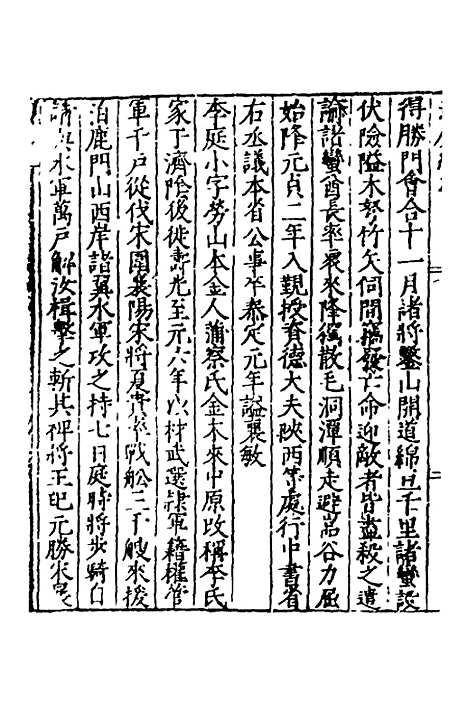 得勝門會合十一月諸將鑿山開道綿亘千里諸蠻設
伏險隘木弩竹矢伺間竊發亡命迎敵者皆盡殺之遣
諭諸蠻酋長率衆來降獨散毛洞潭順走避岩谷力屈
始降元貞二年入覲授資德大夫陜西等處行中書省
右丞議本省公事卒泰定元年謚襄敏
李庭小字勞山本金人蒲察氏金末來中原改稱李氏
家于濟陰後徙壽光至元六年以材武選隸軍籍權管
軍千户從伐宋圍襄陽宋將夏貴率戰舩三千艘來援
泊鹿門山西岸諸翼水軍攻之持七日庭時將步騎自
請與水軍萬户解汝楫擊之斬其裨將王玘元勝水